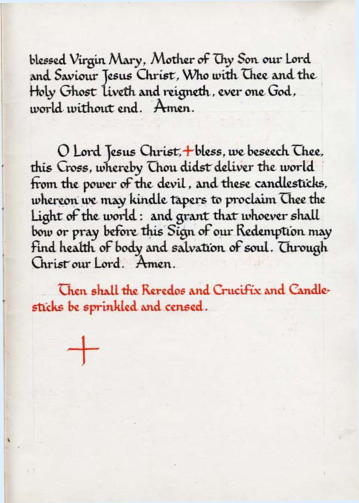 blessed Virgin Mary, Mother of Thy Son our Lord
and Saviour Jesus Christ, Who with Thee and the
Holy Ghost liveth and reigneth, ever one God,
world without end. Amen.
O Lord Jesus Christ, + bless, we beseech Thee,
this Cross, whereby Thou didst deliver the world
from the power of the devil, and these candlesticks,
whereon we may kindle tapers to proclaim Thee the
Light of the world: and grant that whoever shall
bow or pray before this Sign of our Redemption may
find health of body and salvation of soul. Through
Christ our Lord. Amen.
Then shall the Reredos and Crucifix and Candle-
sticks be sprinkled and censed.
+